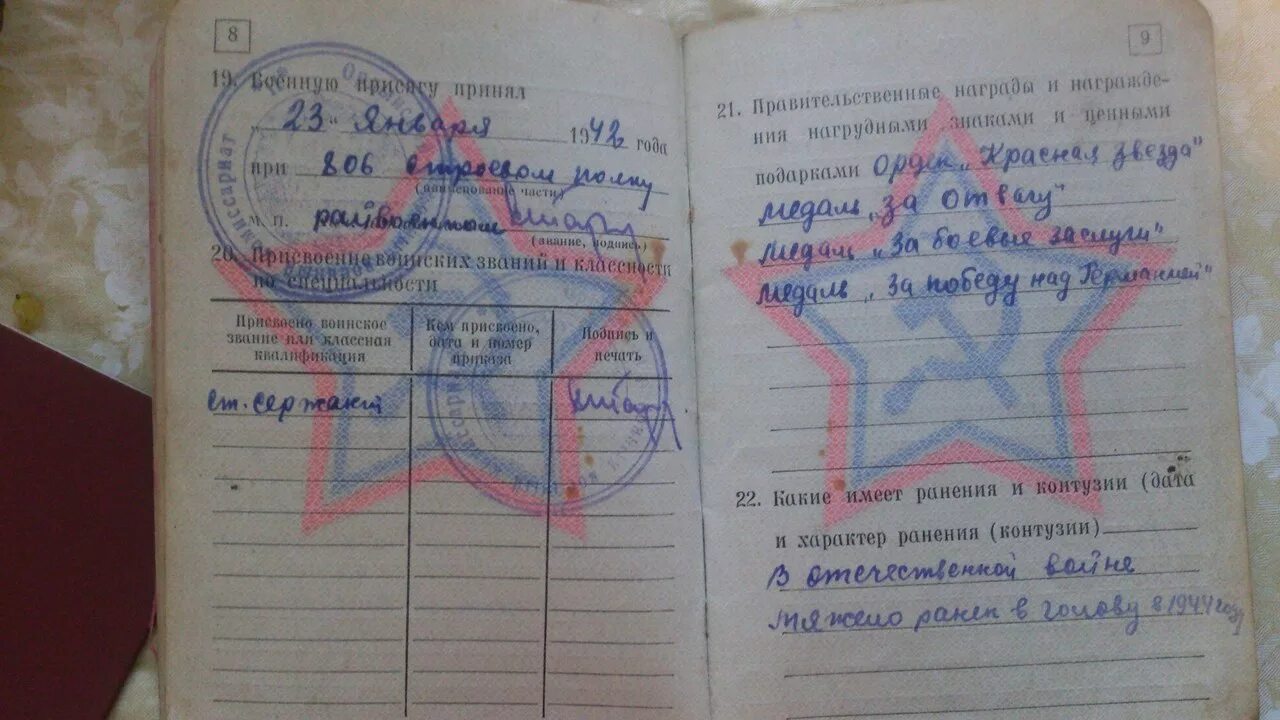 8
19. Военную присягу принял
„23" Января 1942 года
при 806 строевом полку
(наименование части)
м. п. райвоенком
(звание, подпись)
20. Присвоение воинских званий и классности
по специальности
Присвоено воинское звание или классная квалификация
Кем присвоено, дата и номер приказа
Подпись и печать
ст. сержант
9
21. Правительственные награды и награжде-
ния нагрудными знаками и ценными
подарками Орден „Красная звезда"
медаль „За отвагу"
медаль „За боевые заслуги"
медаль „За победу над Германией"
22. Какие имеет ранения и контузии (дата
и характер ранения (контузии)
В отечественной войне
тяжело ранен в голову в 1944 году